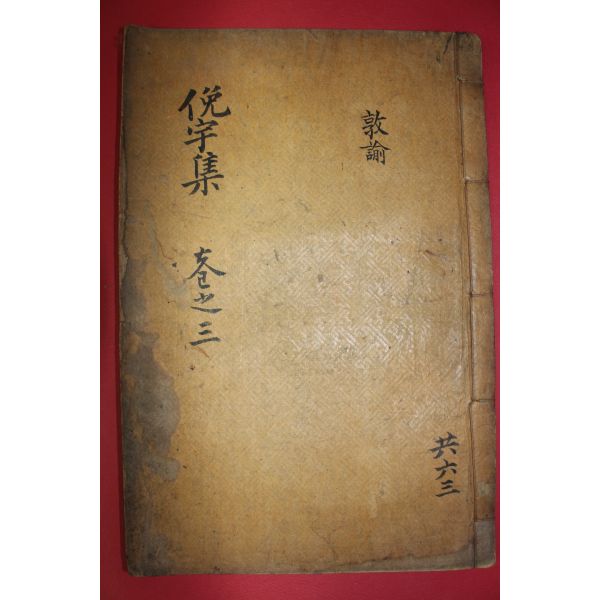 俛宇集 卷之三
敦諭
共六三